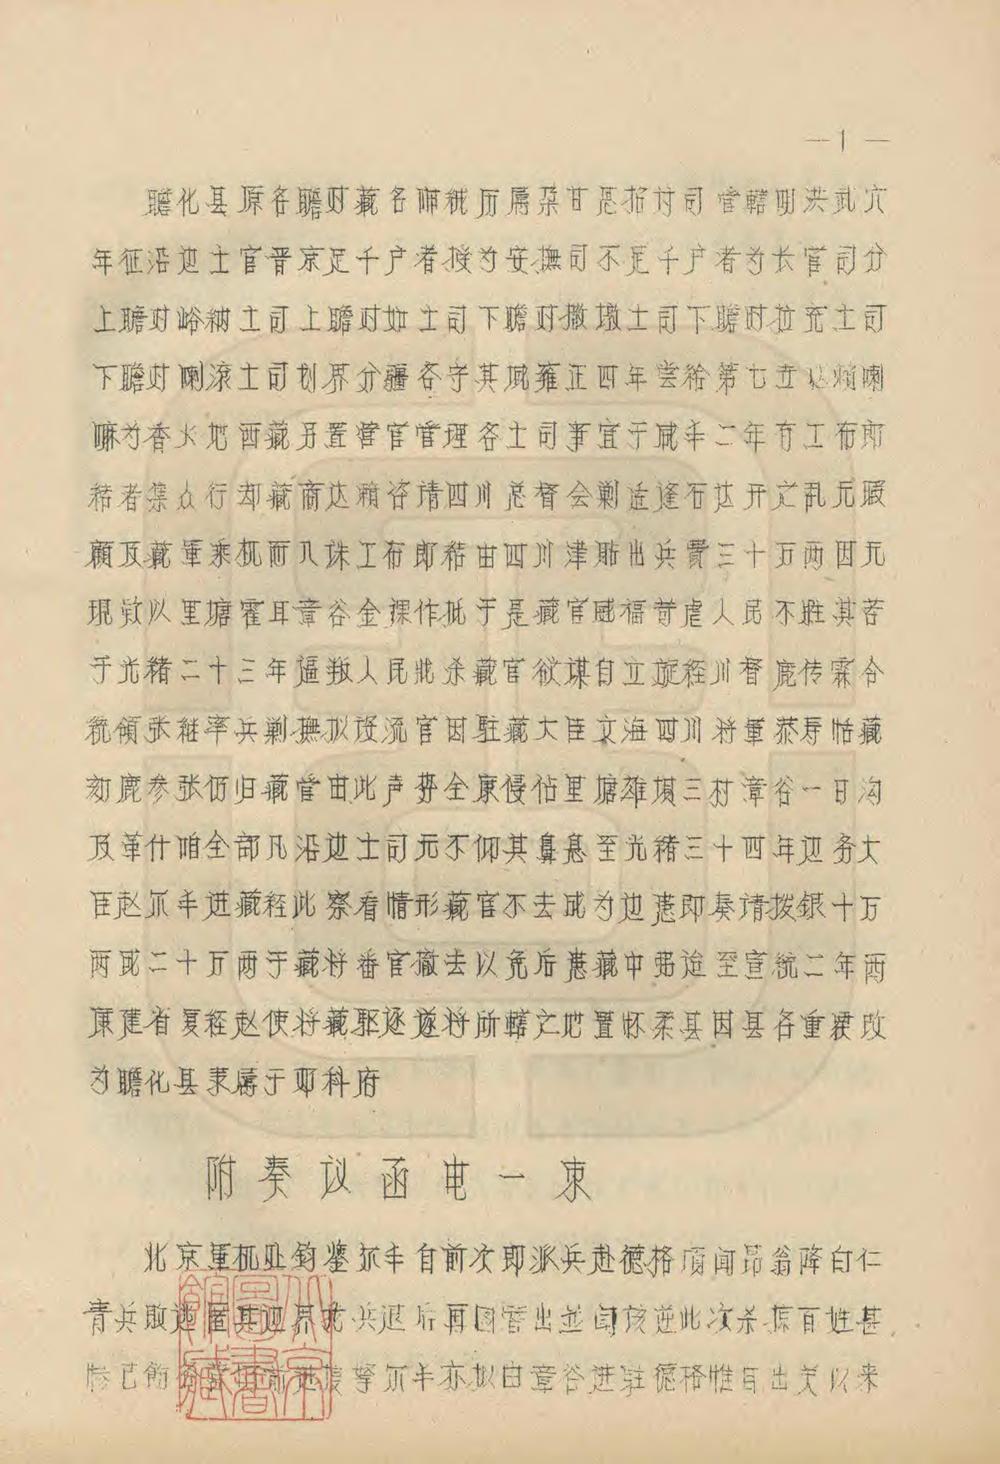 —1—
瞻化县原各瞻对藏名娜秕历属朶甘思招讨司管辖明洪武六
年征沿边土官晋京足千户者授为安撫司不足千户者为长官司分
上瞻对峪纳土司上瞻对如土司下瞻对撒墩土司下瞻对拉充土司
下瞻对喇滚土司划界分疆各守其域雍正四年尝给第七查达頼喇
嘛为香火地西藏另置营官管理各土司事宜于咸丰二年有工布郎
稽者集众行却藏商达頼咨请四川总督会剿适逢石达开之乱无暇
顾及藏軍乘机而入诛工布郎稽由四川津贴出兵費三十万两因无
现欵以里塘霍耳章谷金课作抵于是藏官威福苛虐人民不胜其苦
于光緒二十三年逼叛人民戕杀藏官欲谋自立旋经川督鹿传霖令
統領张继率兵剿撫拟设流官因駐藏大臣文海四川将軍恭寿恪藏
劾鹿参张仍归藏管由此声势全康侵佔里塘雄項三村章谷一日沟
及革什咱全部凡沿边土司无不仰其鼻息至光緒三十四年边务大
臣赵尔丰进藏经此察看情形藏官不去成为边患即奏请拨銀十万
两或二十万两于藏将番官撤去以免后患藏中弗追至宣統二年西
康建省复经赵使将藏驱逐遂将所轄之地置怀柔县因县名重複改
为瞻化县隶属于邓科府
附奏议函电一束
北京軍机处鈞鉴尔丰自前次即派兵赴德格頃闻昂翁降白仁
青兵敗逃匿其边界尤共退后再图窜出並闻该逆此次杀掠百姓甚
惨已飭 前进搜拏尔丰亦拟由章谷进駐德格惟自出关以来